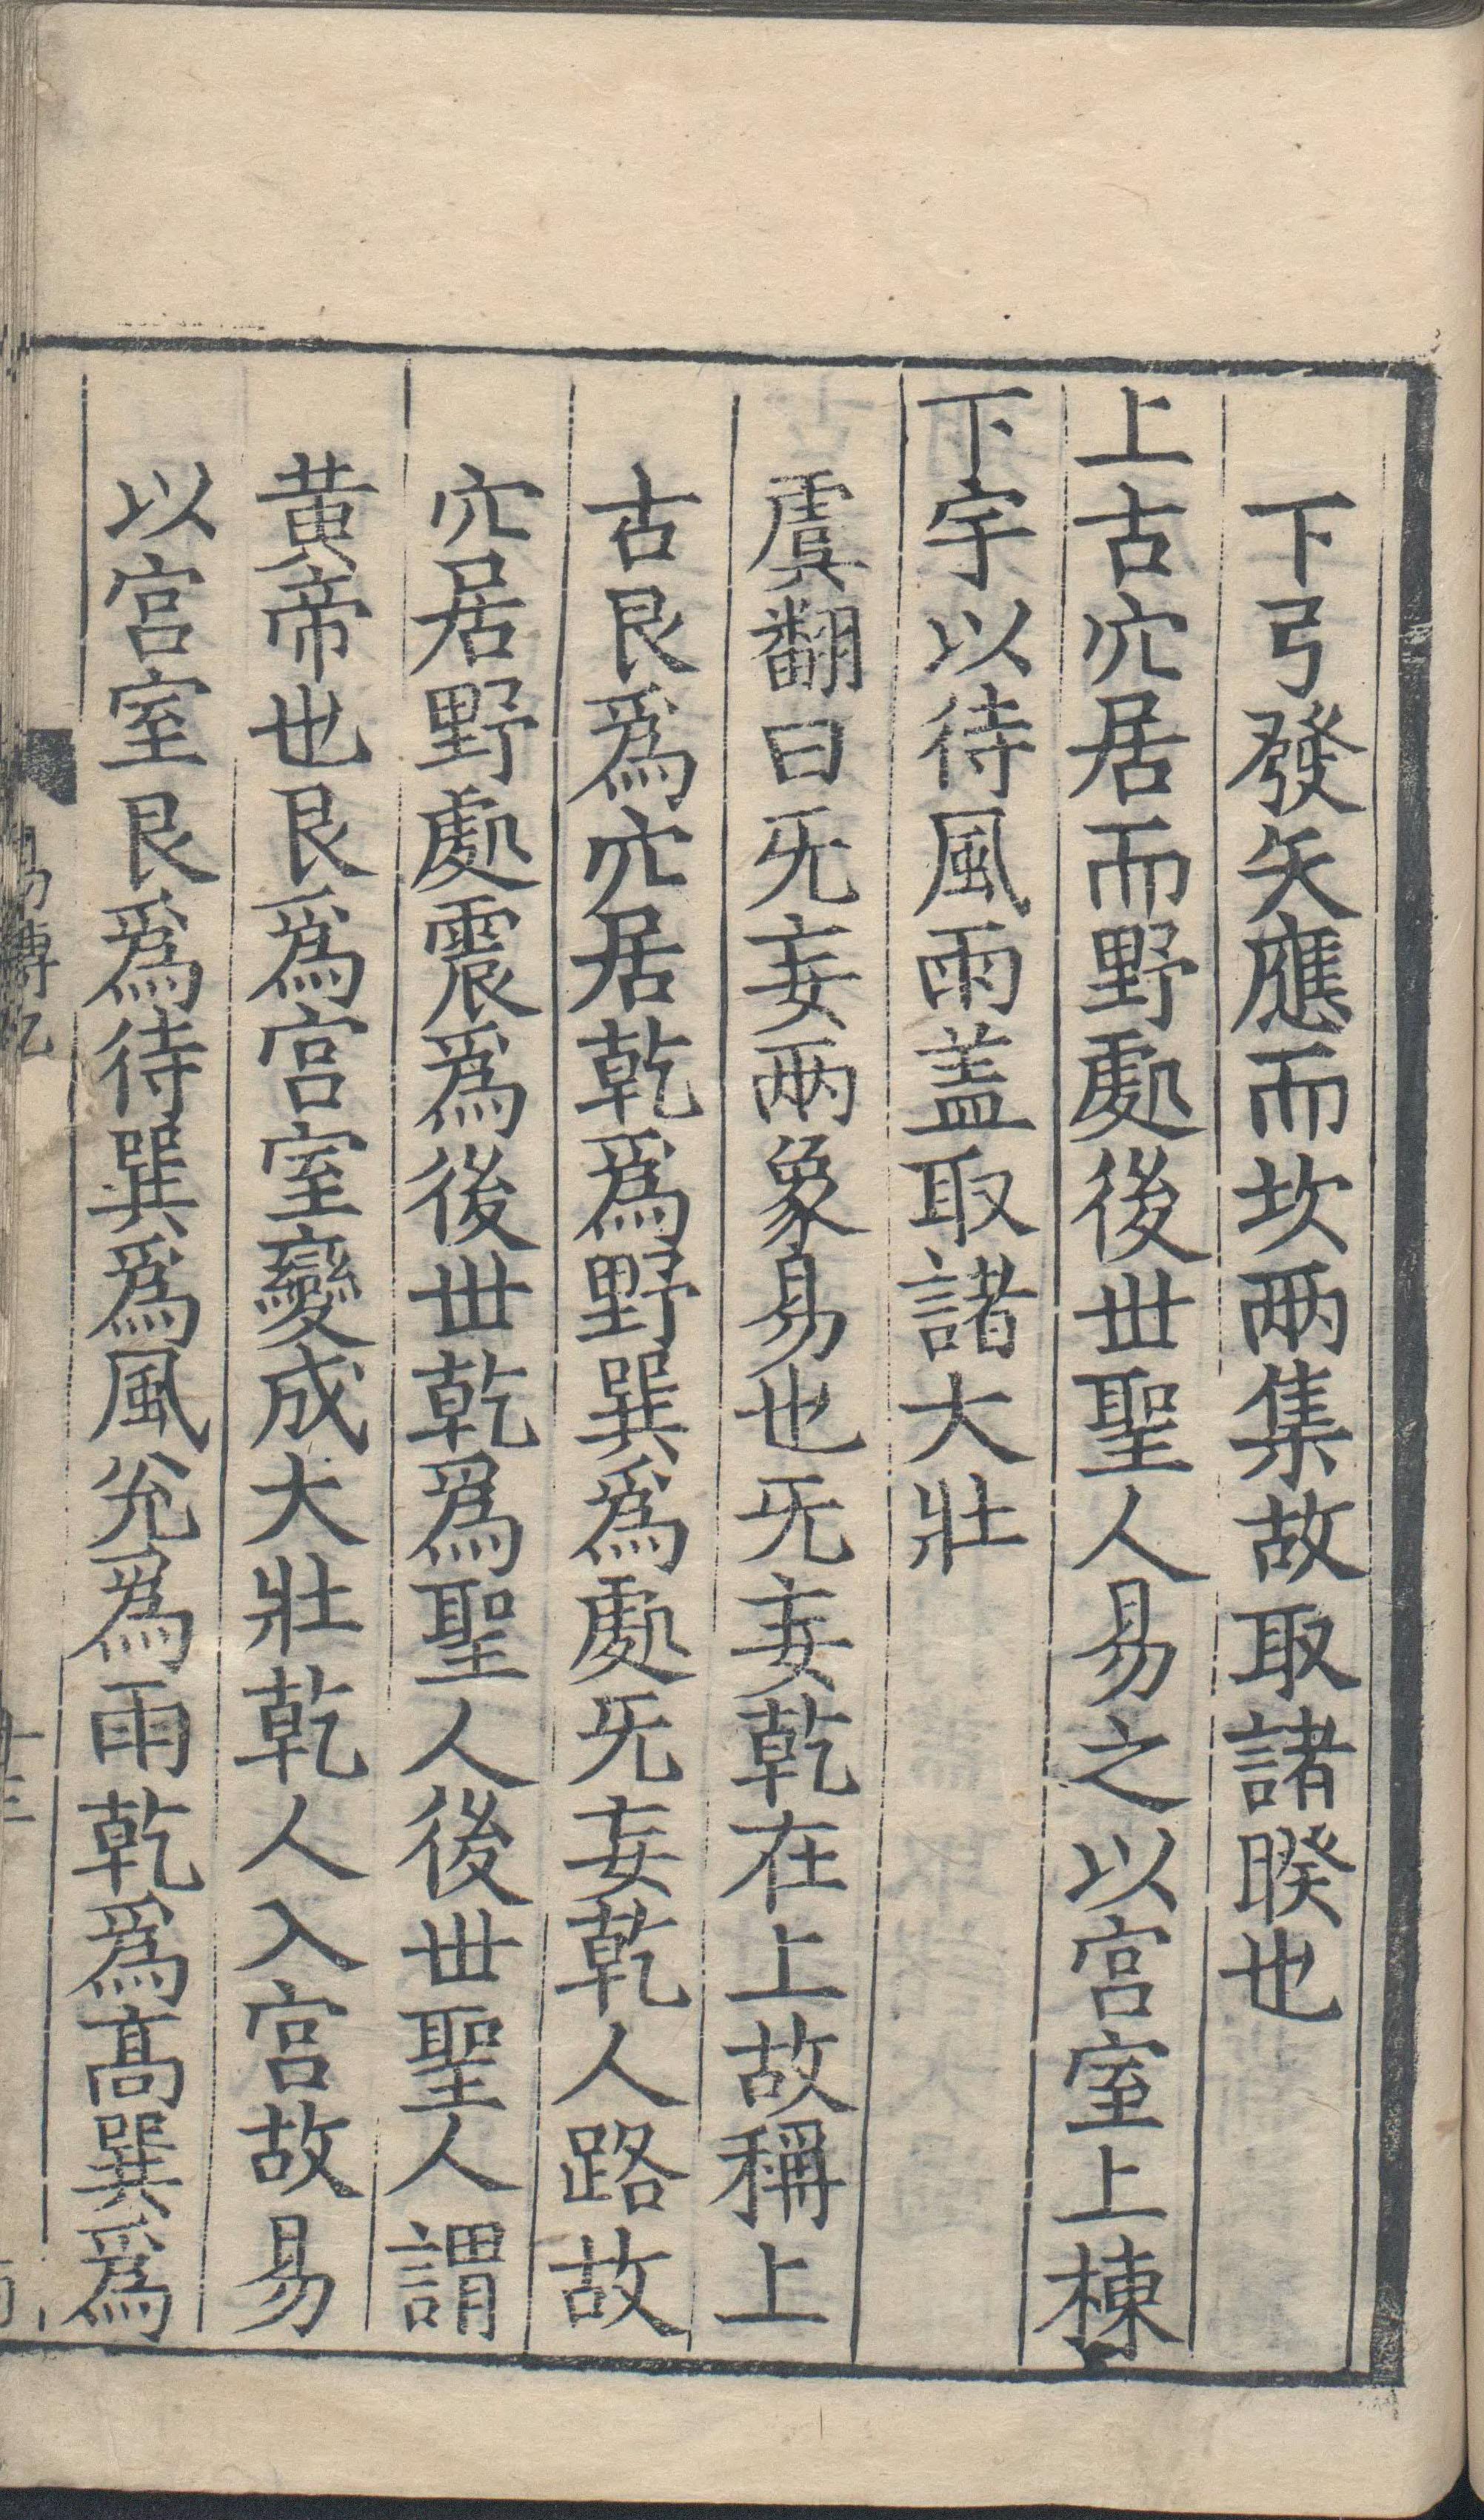 下弓發矢應而坎兩集故取諸睽也
上古穴居而野處後世聖人易之以宮室上棟
下宇以待風雨盖取諸大壯
虞翻曰旡妄兩象易也旡妄乾在上故稱上
古艮爲穴居乾爲野巽爲處旡妄乾人路故
穴居野處震爲後世乾爲聖人後世聖人謂
黃帝也艮爲宮室變成大壯乾人入宮故易
以宮室艮爲待巽爲風兊爲雨乾爲高巽爲